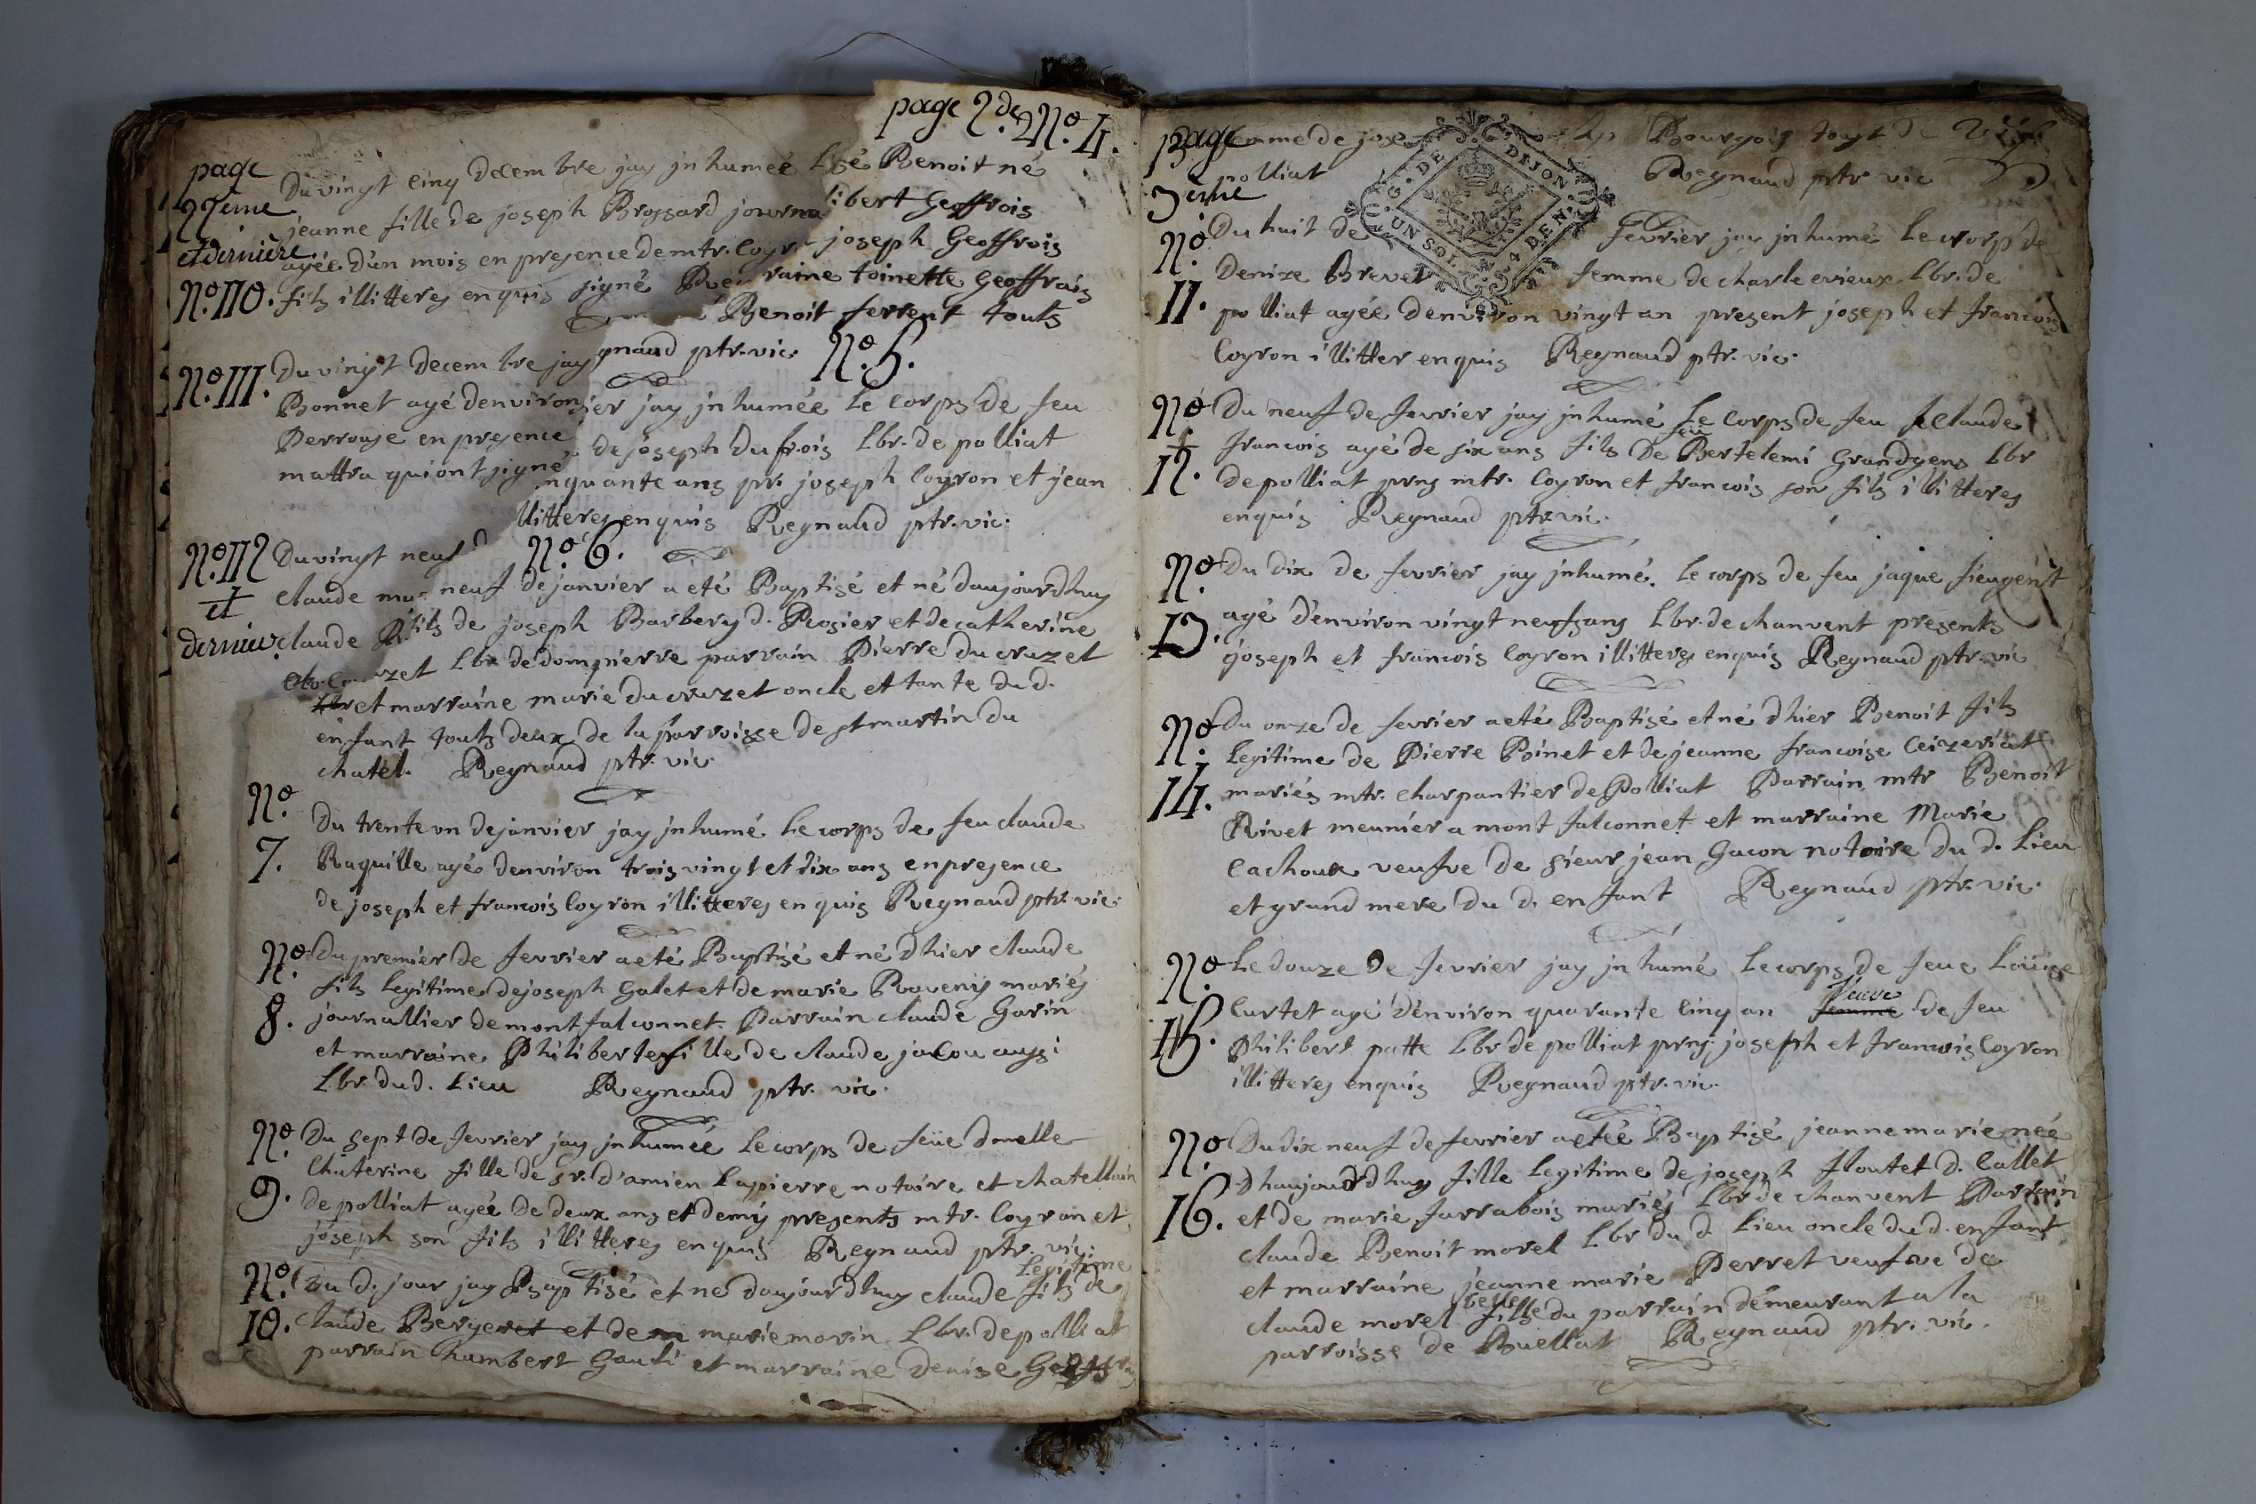 page 2de 2 No. 4.
page
22eme
et derniére
No. 110.
Du vingt cinq decembre jay jnhumeé
Benoit né
jeanne fille de joseph Brossard journa
libert Geoffrois
agée d'un mois en presence de mtr. Coyr
joseph Geoffrois
fils illitteres enquis signé Reg
raine toinette Geoffrais
Benoit ferrent touts
gnaud ptr. vic. No. 5.
No. 111. Du vingt decembre jay
Bonnet agé denviron
ier jay jnhumée le Corps de feu
Perrouse en presence
de joseph dufrois Lbr. de polliat
mattra qui ont signé
nquante ans pr. joseph Coyron et jean
llitteres enquis Regnaud ptr. vic.
No. 6.
No. 112
et
dernier.
Du vingt neuf d
claude mar
neuf de janvier a eté Baptisé et né daujourdhuy
claude
fils de joseph Barbery d. Rosier et de catherine
zet Lbr de dompierre parrain Pierre du cruzet
et marraine marie du cruzet oncle et tante du d.
enfant touts deux de la parroisse de st martin du
chatel. Regnaud ptr. vic.
No.
7.
Du trente un de janvier jay jnhumé le corps de feu claude
Raquille agé denviron trois vingt et dix ans en presence
de joseph et francois Coyron illitteres enquis Regnaud ptr. vic.
No.
8.
Du premiér de fevrier a eté Baptisé et né dhier claude
fils Legitime de joseph Galet et de marie Raveniy mariés
journallier de montfalconnet. Parrain claude Garin
et marraine Philiberte fille de claude jacou aussi
Lbr. du d. Lieu Regnaud ptr. vic.
No.
9.
Du sept de fevrier jay jnhumeé le corps de feüe dmelle
Chaterine fille de sr. d'amien Lapierre notaire et chatellain
de polliat agée de deux ans et demy presents mtr. Coyron et
joseph son fils illitteres enquis Regnaud ptr. vic.
No.
10.
Du d. jour jay Baptisé et né daujourdhuy claude fils Legitime de
claude Bergeret et de marie morin Lbr. de polliat
parrain humbert Gauti et marraine Denise
page
3eme
femme de jose
Bourgois
polliat
Regnaud ptr. vic
3.
G. DE DIJON
UN SOL 4 DEN.
No.
11.
Du huit de
fevrier jay jnhumé le corps de
Denize Brevet
femme de charle evieux Lbr. de
polliat agée denviron vingt an present joseph et francois
Coyron illitter enquis Regnaud ptr. vic.
No
†
12.
Du neuf de fevrier jay jnhumé le Corps de feu claude
francois agé de six ans fils de feu Bertelemi Grandgens Lbr
de polliat prns mtr. Coyron et francois son fils illitteres
enquis Regnaud ptr. vic.
No.
13.
Du dix de fevrier jay jnhumé. Le corps de feu jaque fieugent
agé d'environ vingt neufz ans Lbr. de chanvent presents
joseph et francois Coyron illitteres enquis Regnaud ptr. vic
No.
14.
Du onze de fevrier a eté Baptisé et né dhier Benoit fils
Legitime de Pierre Poinet et de jeanne francoise Ceizeriat
mariés mtr. charpantier de Polliat Parrain mtr Benoit
Rivet meunier a montfalconnet et marraine Marie
Cachoux veufve de sieur jean Gacon notaire du d. Lieu
et grand mere du d. enfant Regnaud ptr. vic.
No.
15.
Le douze de fevrier jay jnhumé Le corps de feue Loüise
Curtet agé d'environ quarante cinq an veuve de feu
Philibert patte Lbr de polliat prns. joseph et francois Coyron
illitteres enquis Regnaud ptr. vic.
No.
16.
Du dix neuf de fevrier a eteé Baptisé jeanne marie neé
dhaujourdhuy fille Legitime de joseph floutet d. Callet
et de marie farrabois mariés Lbr de chanvent Parrain
claude Benoit morel Lbr du d. Lieu oncle du d. enfant
et marraine jeanne marie Perret veufve de
claude morel belle fille du parrain demeurant a la
parroisse de Buellat Regnaud ptr. vic.